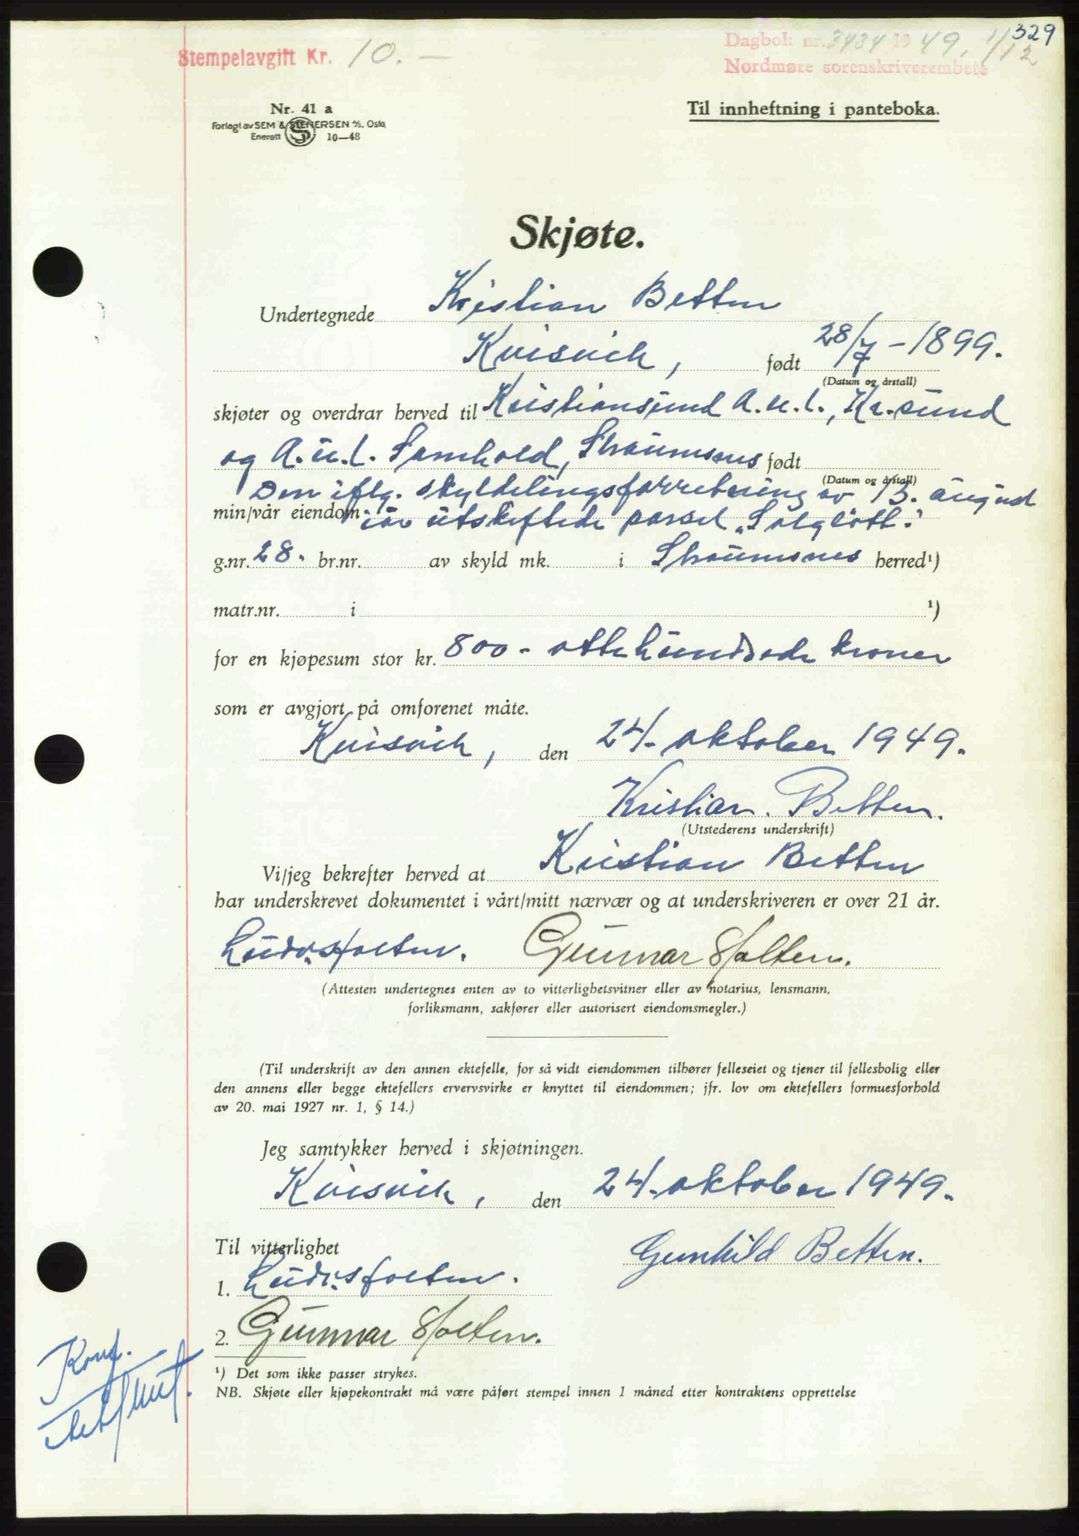 329
Stempelavgift Kr. 10.—
Dagbok nr. 3434 1949, 1/12
Nordmøre sorenskriverembete
Nr. 41 a
Forlagt av SEM & STENERSEN A/S. Oslo
Enerett 10—48
Til innheftning i panteboka.
Skjøte.
Undertegnede Kristian Betten
Kvisvik, født 28/7-1899.
(Datum og årstall)
skjøter og overdrar herved til Kristiansund A.u.l., Kr.sund
og A.u.l. Samhold, Straumsnes født
(Datum og årstall)
Den iflg. skyldelingsforretning av 13. august
min/vår eiendom iår utskiftede parsel "Solgløtt."
g.nr. 28. br.nr. av skyld mk. i Straumsnes herred¹)
matr.nr. i ¹)
for en kjøpesum stor kr. 800 - åttehundrede kroner
som er avgjort på omforenet måte.
Kvisvik, den 24. oktober 1949.
Kristian. Betten.
(Utstederens underskrift)
Vi/jeg bekrefter herved at Kristian Betten
har underskrevet dokumentet i vårt/mitt nærvær og at underskriveren er over 21 år.
Gunnar Holten.
(Attesten undertegnes enten av to vitterlighetsvitner eller av notarius, lensmann,
forliksmann, sakfører eller autorisert eiendomsmegler.)
(Til underskrift av den annen ektefelle, for så vidt eiendommen tilhører felleseiet og tjener til fellesbolig eller
den annens eller begge ektefellers ervervsvirke er knyttet til eiendommen; jfr. lov om ektefellers formuesforhold
av 20. mai 1927 nr. 1, § 14.)
Jeg samtykker herved i skjøtningen.
Kvisvik, den 24. oktober 1949.
Til vitterlighet
Gunhild Betten.
1.
2. Gunnar Holten.
Konf.
¹) Det som ikke passer strykes.
NB. Skjøte eller kjøpekontrakt må være påført stempel innen 1 måned etter kontraktens opprettelse